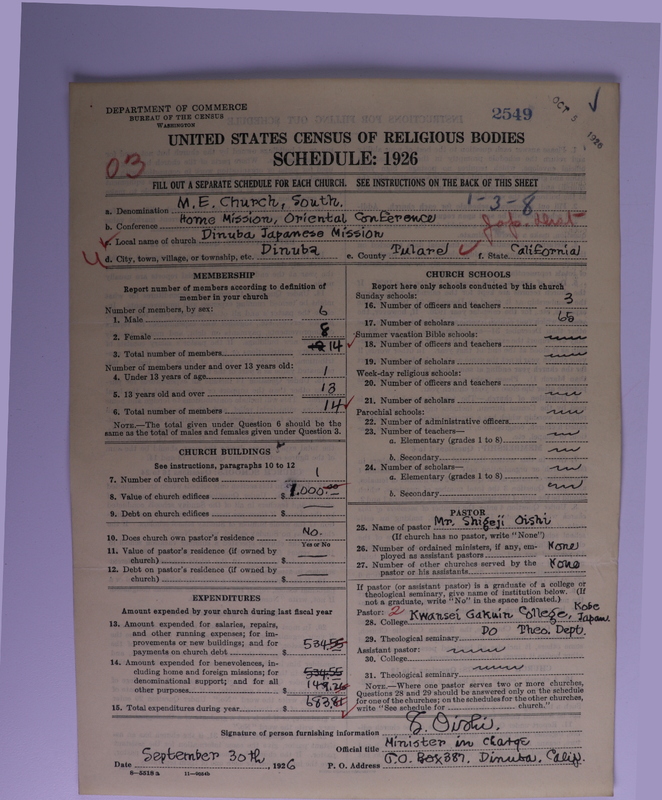 DEPARTMENT OF COMMERCE
BUREAU OF THE CENSUS
WASHINGTON
2549
OCT 5 1926
UNITED STATES CENSUS OF RELIGIOUS BODIES
SCHEDULE: 1926
03
FILL OUT A SEPARATE SCHEDULE FOR EACH CHURCH. SEE INSTRUCTIONS ON THE BACK OF THIS SHEET
1-3-8
a. Denomination M.E. Church, South.
b. Conference Home Mission, Oriental Conference
c. Local name of church Dinuba Japanese Mission
d. City, town, village, or township, etc. Dinuba e. County Tulare f. State California
MEMBERSHIP
Report number of members according to definition of member in your church
Number of members, by sex:
1. Male 6
2. Female 8
3. Total number of members 14
Number of members under and over 13 years old:
4. Under 13 years of age 1
5. 13 years old and over 13
6. Total number of members 14
NOTE.—The total given under Question 6 should be
same as the total of males and females given under Question 3.
CHURCH BUILDINGS
See instructions, paragraphs 10 to 12
7. Number of church edifices 1
8. Value of church edifices $1,000.00
9. Debt on church edifices $
10. Does church own pastor's residence No.
Yes or No
11. Value of pastor's residence (if owned by
church) $
12. Debt on pastor's residence (if owned by
church) $
EXPENDITURES
Amount expended by your church during last fiscal year
13. Amount expended for salaries, repairs,
and other running expenses; for im-
provements or new buildings; and for
payments on church debt $ 534.55
14. Amount expended for benevolences, in-
cluding home and foreign missions; for
denominational support; and for all
other purposes $ 534.55 149.26
15. Total expenditures during year $ 683.81
CHURCH SCHOOLS
Report here only schools conducted by this church
Sunday schools:
16. Number of officers and teachers 3
17. Number of scholars 65
Summer vacation Bible schools:
18. Number of officers and teachers
19. Number of scholars
Week-day religious schools:
20. Number of officers and teachers
21. Number of scholars
Parochial schools:
22. Number of administrative officers
23. Number of teachers—
a. Elementary (grades 1 to 8)
b. Secondary
24. Number of scholars—
a. Elementary (grades 1 to 8)
b. Secondary
PASTOR
25. Name of pastor Mr. Shigeji Oishi
(If church has no pastor, write "None")
26. Number of ordained ministers, if any, em-
ployed as assistant pastors None
27. Number of other churches served by the
pastor or his assistants None
If pastor (or assistant pastor) is a graduate of a college or
theological seminary, give name of institution below. (If
not a graduate, write "No" in the space indicated.)
Pastor: 2
28. College Kwansei Gakuin College, Kobe Japan.
29. Theological seminary Do Theo. Dept.
Assistant pastor:
30. College
31. Theological seminary
NOTE.—Where one pastor serves two or more churches,
Questions 28 and 29 should be answered only on the schedule
for one of the churches; on the schedules for the other churches,
write "See schedule for church."
Signature of person furnishing information S. Oishi.
Official title Minister in charge
Date September 30th, 1926 P. O. Address P.O. Box 387, Dinuba, Calif.
8-5318a 11-9024b